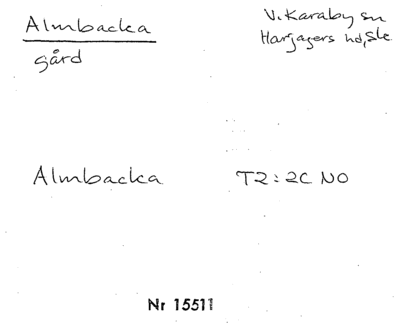 Almbacka
gård
V. Karaby sn
Harjagers hd, Ske
Almbacka T2:2C NO
Nr 15511